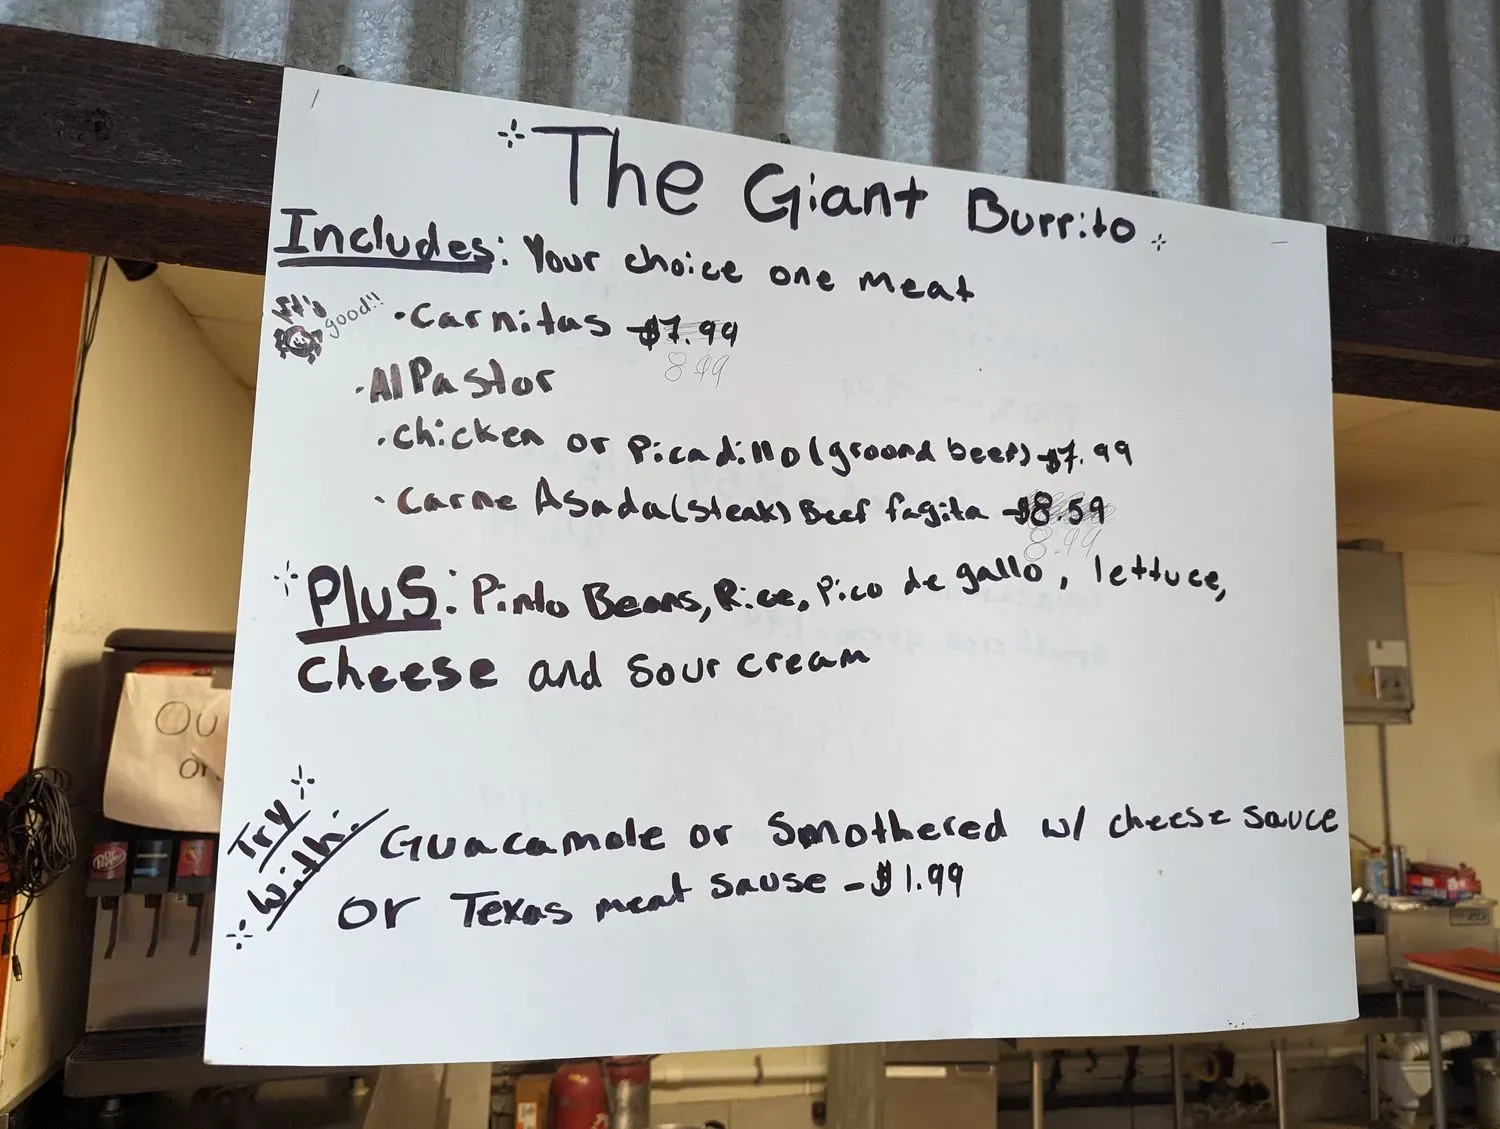 The Giant Burrito
Includes: Your choice one meat
It's good!!
·Carnitas -$7.99
8.49
·Al Pastor
·chicken or Picadillo (ground beef) -$7.99
·Carne Asada (steak) Beef fagita -$8.59
8.99
Plus: Pinto Beans, Rice, Pico de gallo, lettuce,
cheese and sour cream
Try With: Guacamole or Smothered w/ cheese sauce
or Texas meat sause -$1.99
OU
Dr Pepper